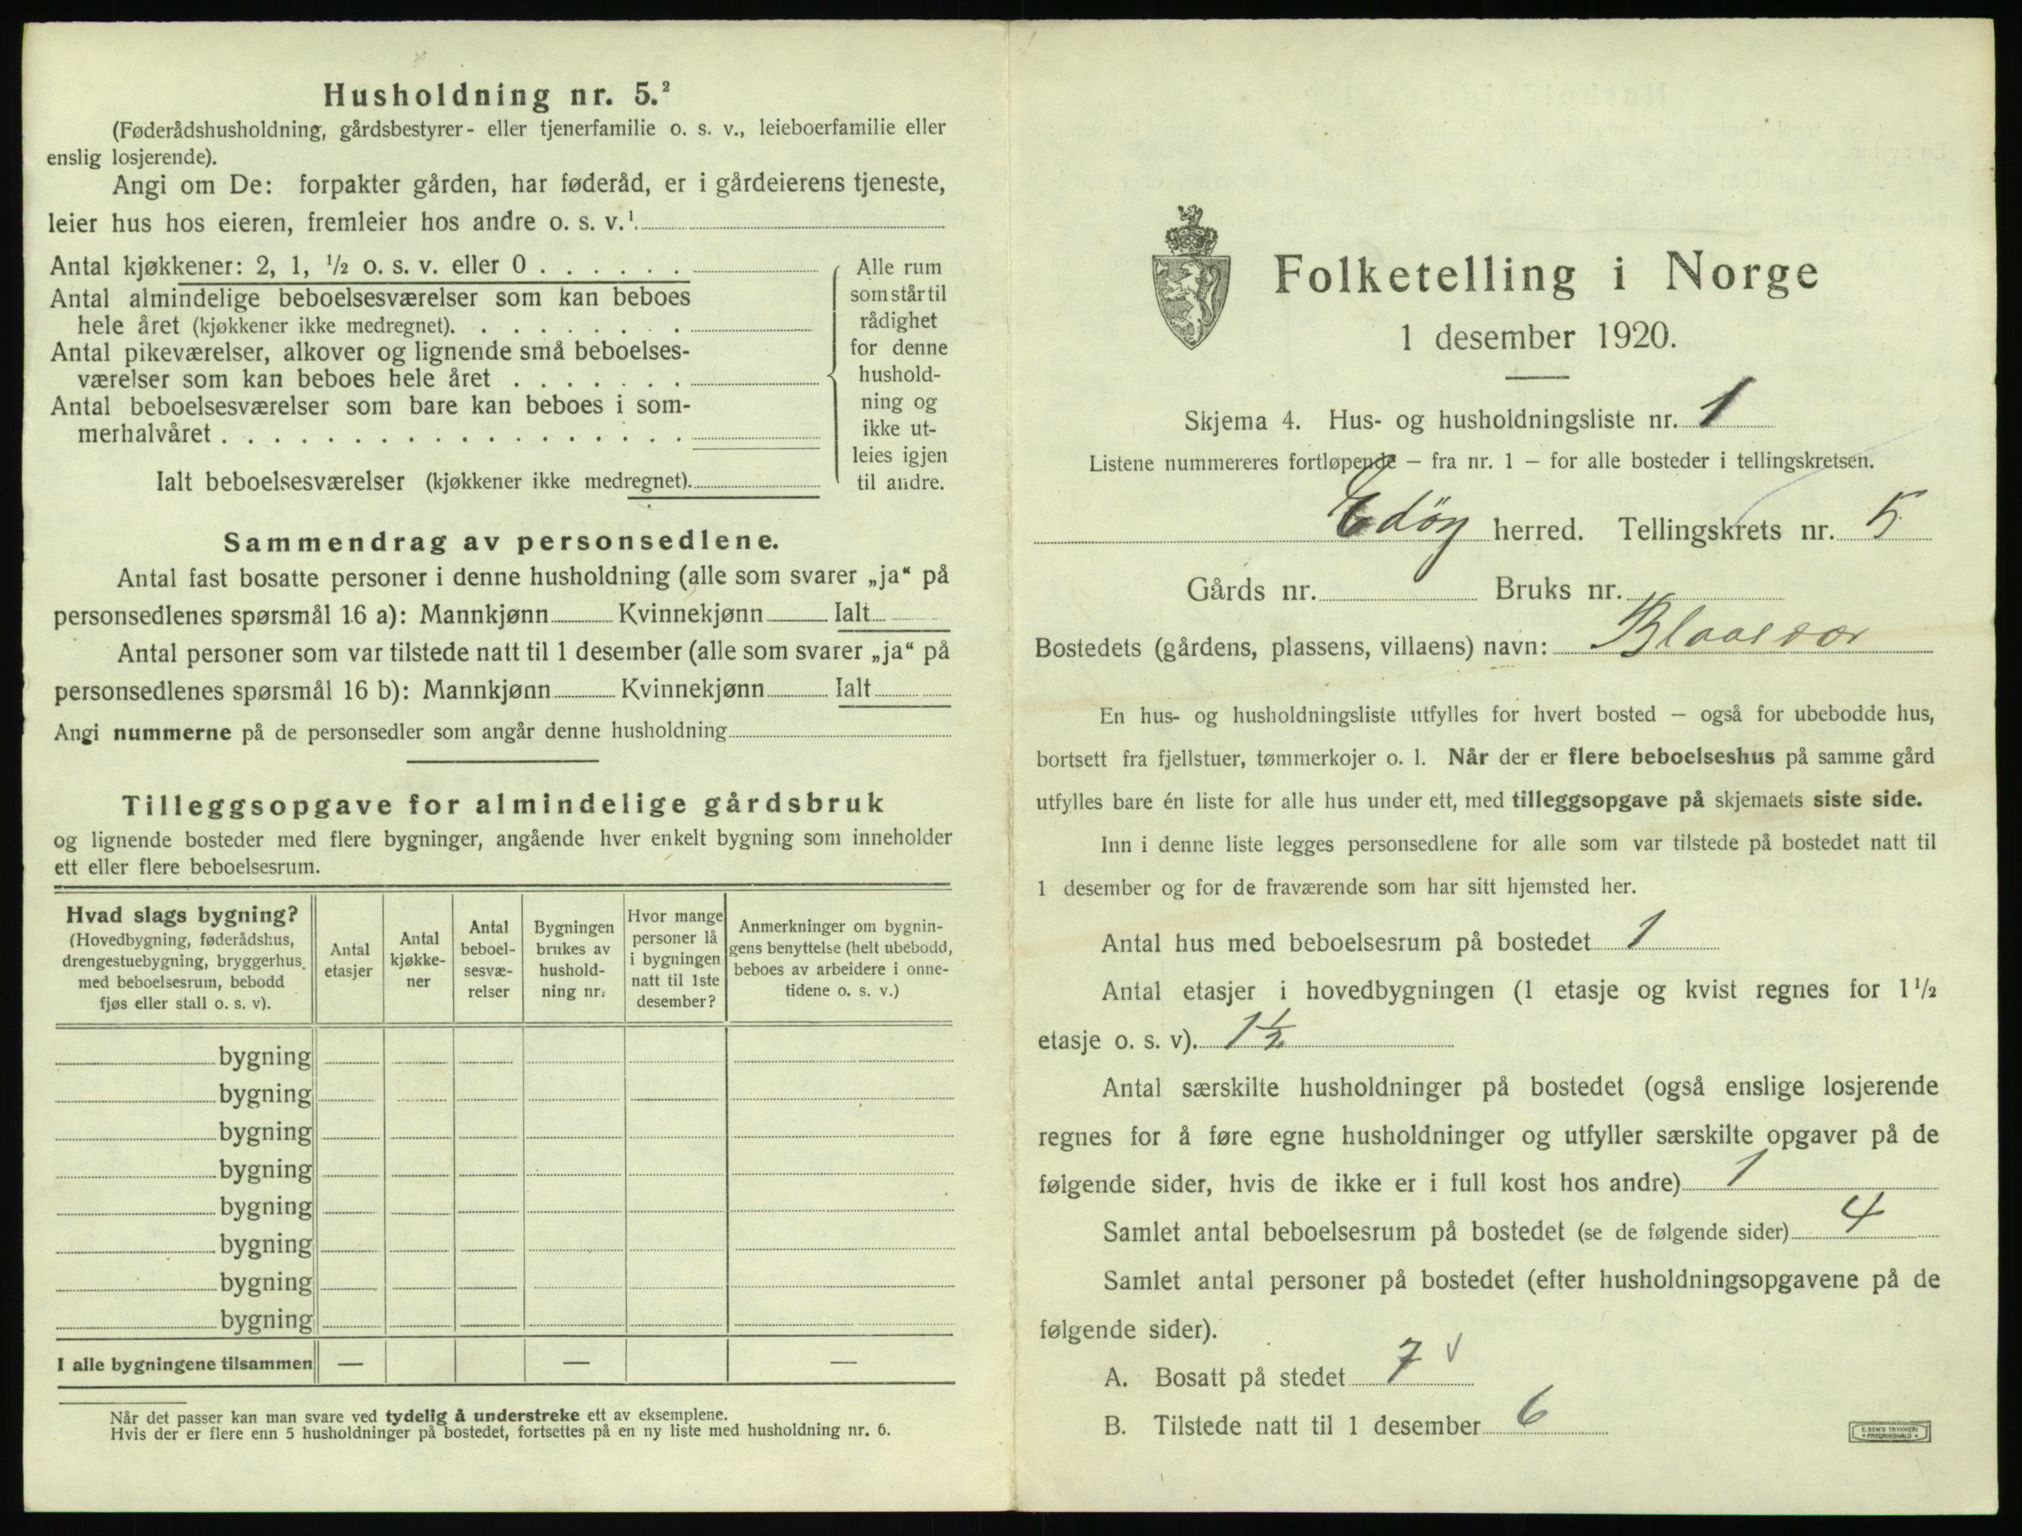 Husholdning nr. 5.²
(Føderådshusholdning, gårdsbestyrer- eller tjenerfamilie o. s. v., leieboerfamilie eller
enslig losjerende).
Angi om De: forpakter gården, har føderåd, er i gårdeierens tjeneste,
leier hus hos eieren, fremleier hos andre o. s. v.¹
Antal kjøkkener: 2, 1, ½ o. s. v. eller 0 . . . . . .
Antal almindelige beboelsesværelser som kan beboes
hele året (kjøkkener ikke medregnet). . . . . . . . .
Antal pikeværelser, alkover og lignende små beboelses-
værelser som kan beboes hele året . . . . . . .
Antal beboelsesværelser som bare kan beboes i som-
merhalvåret . . . . . . . . . . . . . . . . .
Alle rum
som står til
rådighet
for denne
hushold-
ning og
ikke ut-
leies igjen
til andre.
Ialt beboelsesværelser (kjøkkener ikke medregnet).
Sammendrag av personsedlene.
Antal fast bosatte personer i denne husholdning (alle som svarer „ja“ på
personsedlenes spørsmål 16 a): Mannkjønn Kvinnekjønn Ialt
Antal personer som var tilstede natt til 1 desember (alle som svarer „ja“ på
personsedlenes spørsmål 16 b): Mannkjønn Kvinnekjønn Ialt
Angi nummerne på de personsedler som angår denne husholdning
Tilleggsopgave for almindelige gårdsbruk
og lignende bosteder med flere bygninger, angående hver enkelt bygning som inneholder
ett eller flere beboelsesrum.
Hvad slags bygning?
(Hovedbygning, føderådshus,
drengestuebygning, bryggerhus
med beboelsesrum, bebodd
fjøs eller stall o. s. v).
Antal
etasjer
Antal
kjøkke-
ner
Antal
beboel-
sesvæ-
relser
Bygningen
brukes av
hushold-
ning nr.
Hvor mange
personer lå
i bygningen
natt til 1ste
desember?
Anmerkninger om bygnin-
gens benyttelse (helt ubebodd,
beboes av arbeidere i onne-
tidene o. s. v.)
bygning
bygning
bygning
bygning
bygning
bygning
bygning
bygning
I alle bygningene tilsammen — — —
Når det passer kan man svare ved tydelig å understreke ett av eksemplene.
Hvis der er flere enn 5 husholdninger på bostedet, fortsettes på en ny liste med husholdning nr. 6.
Folketelling i Norge
1 desember 1920.
Skjema 4. Hus- og husholdningsliste nr. 1
Listene nummereres fortløpende – fra nr. 1 – for alle bosteder i tellingskretsen.
Edöy herred. Tellingskrets nr. 5
Gårds nr. Bruks nr.
Bostedets (gårdens, plassens, villaens) navn: Blaasvær
En hus- og husholdningsliste utfylles for hvert bosted – også for ubebodde hus,
bortsett fra fjellstuer, tømmerkojer o. l. Når der er flere beboelseshus på samme gård
utfylles bare én liste for alle hus under ett, med tilleggsopgave på skjemaets siste side.
Inn i denne liste legges personsedlene for alle som var tilstede på bostedet natt til
1 desember og for de fraværende som har sitt hjemsted her.
Antal hus med beboelsesrum på bostedet 1
Antal etasjer i hovedbygningen (1 etasje og kvist regnes for 1½
etasje o. s. v). 1½
Antal særskilte husholdninger på bostedet (også enslige losjerende
regnes for å føre egne husholdninger og utfyller særskilte opgaver på de
følgende sider, hvis de ikke er i full kost hos andre) 1
Samlet antal beboelsesrum på bostedet (se de følgende sider) 4
Samlet antal personer på bostedet (efter husholdningsopgavene på de
følgende sider).
A. Bosatt på stedet 7 v
B. Tilstede natt til 1 desember 6
E. SEM'S TRYKKERI
FREDRIKSHALD